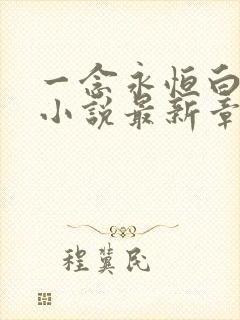 一念永恒白
小说最新章
程冀民